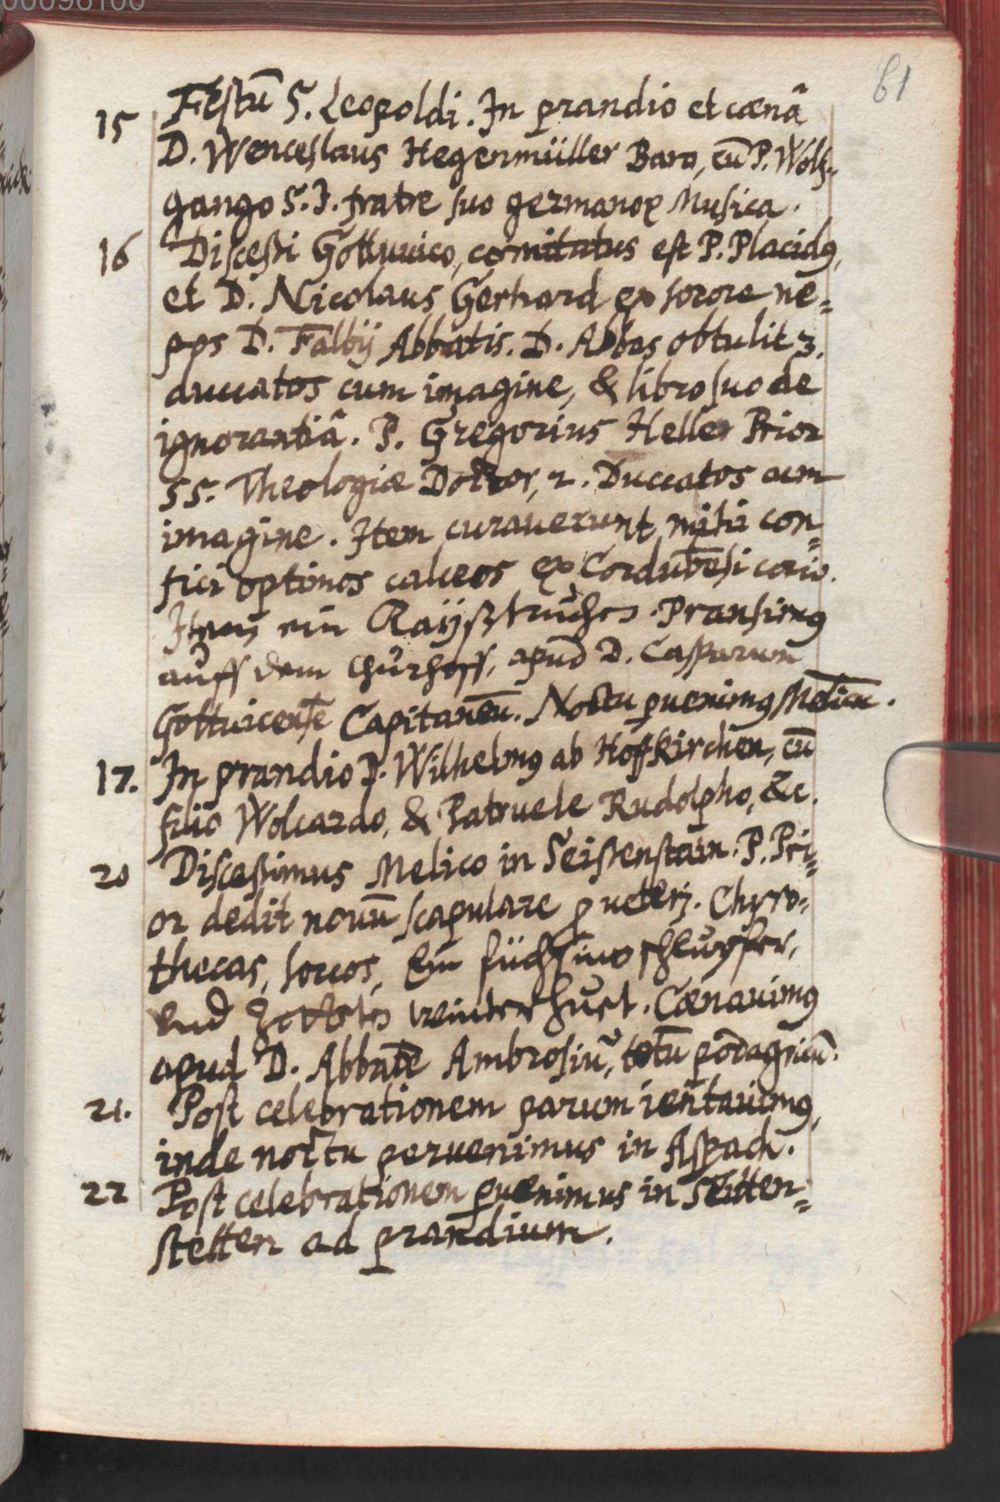 00096100
61
15 Festū S. Leopoldi. In prandio et cænâ
D. Wenceslaus Hegenmüller Baro, cū P. Wolf-
gango S. J. fratre suo germano, Musica.
16 Discessi Gottwico, comitatus est P. Placidꝰ,
et D. Nicolaus Gerhard ex sorore ne-
pos D. Falbij Abbatis. D. Abbas obtulit 3.
duccatos cum imagine, & libro suo de
ignorantiâ. P. Gregorius Heller Prior
SS. Theologiæ Doctor, 2. Duccatos cum
imagine. Item curauerunt mihi con-
fici optimos calceos ex Cordubēsi corio.
Item ein Rayß. Pransimꝰ
auff dem Churhoff, apud D. Casparum
Gottwicensē Capitaneū. Noctu ꝑuenimꝰ Melicū.
17. In prandio D. Wilhelmꝰ ab Hoffkirchen, cū
filio Wolcardo, & Patruele Rudolpho, &c.
20 Discessimus Melico in Seissenstain. P. Pri-
or dedit nouū scapulare ꝓ ueteri. Chyro-
thecas, soccos, Ein
Vnd winter huet. Cænauimꝰ
apud D. Abbatē Ambrosiū, totū podagricū.
21. Post celebrationem parum ientauimꝰ,
inde noctu peruenimus in Aspach.
22 Post celebrationem ꝑuenimus in Seitten-
stetten ad prandium.